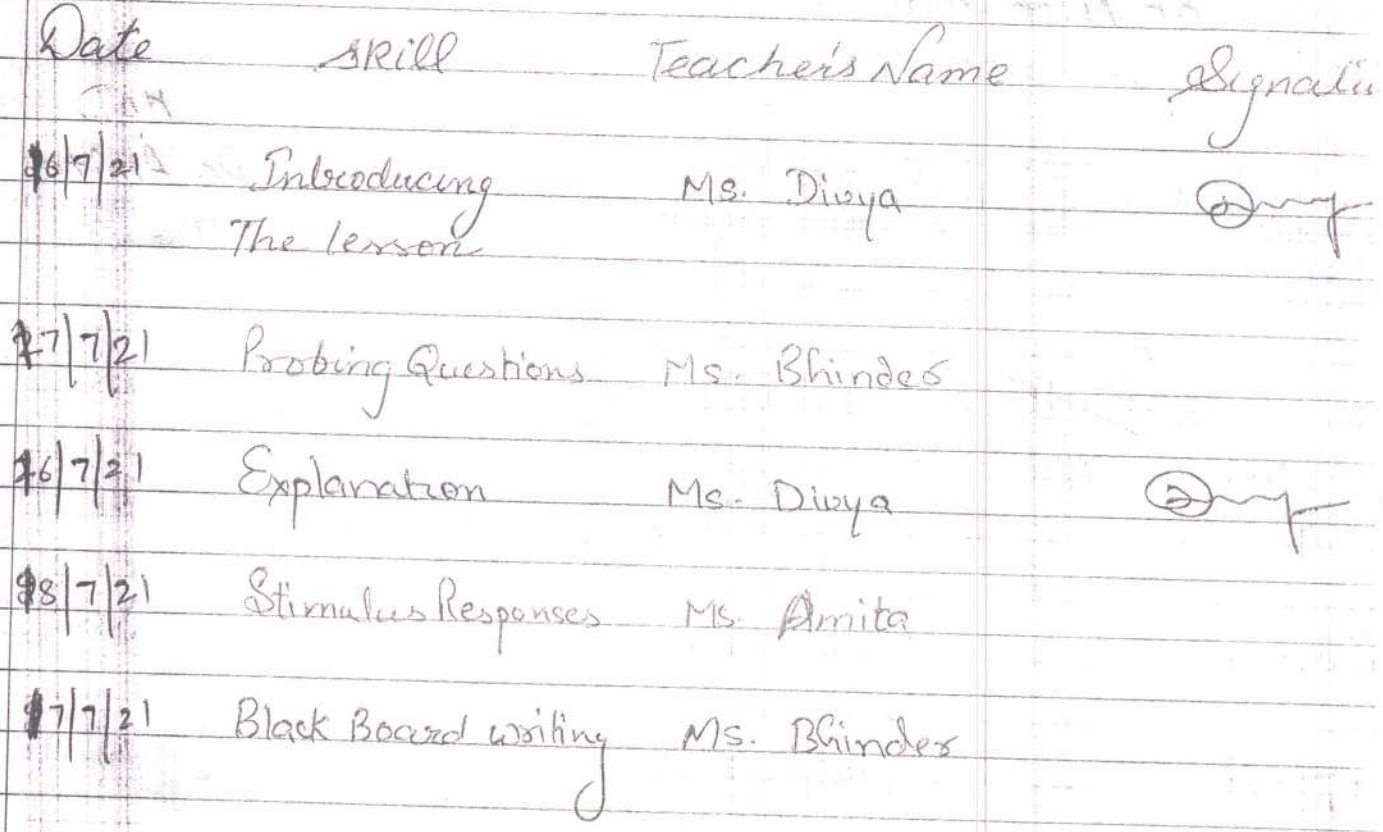 Date skill Teacher's Name Signatu
16/7/21 Introducing Ms. Divya
The lesson
17/7/21 Probing Questions Ms. Bhinder
16/7/21 Explanation Ms. Divya
18/7/21 Stimulus Responses Ms. Amita
17/7/21 Black Board writing Ms. Bhinder